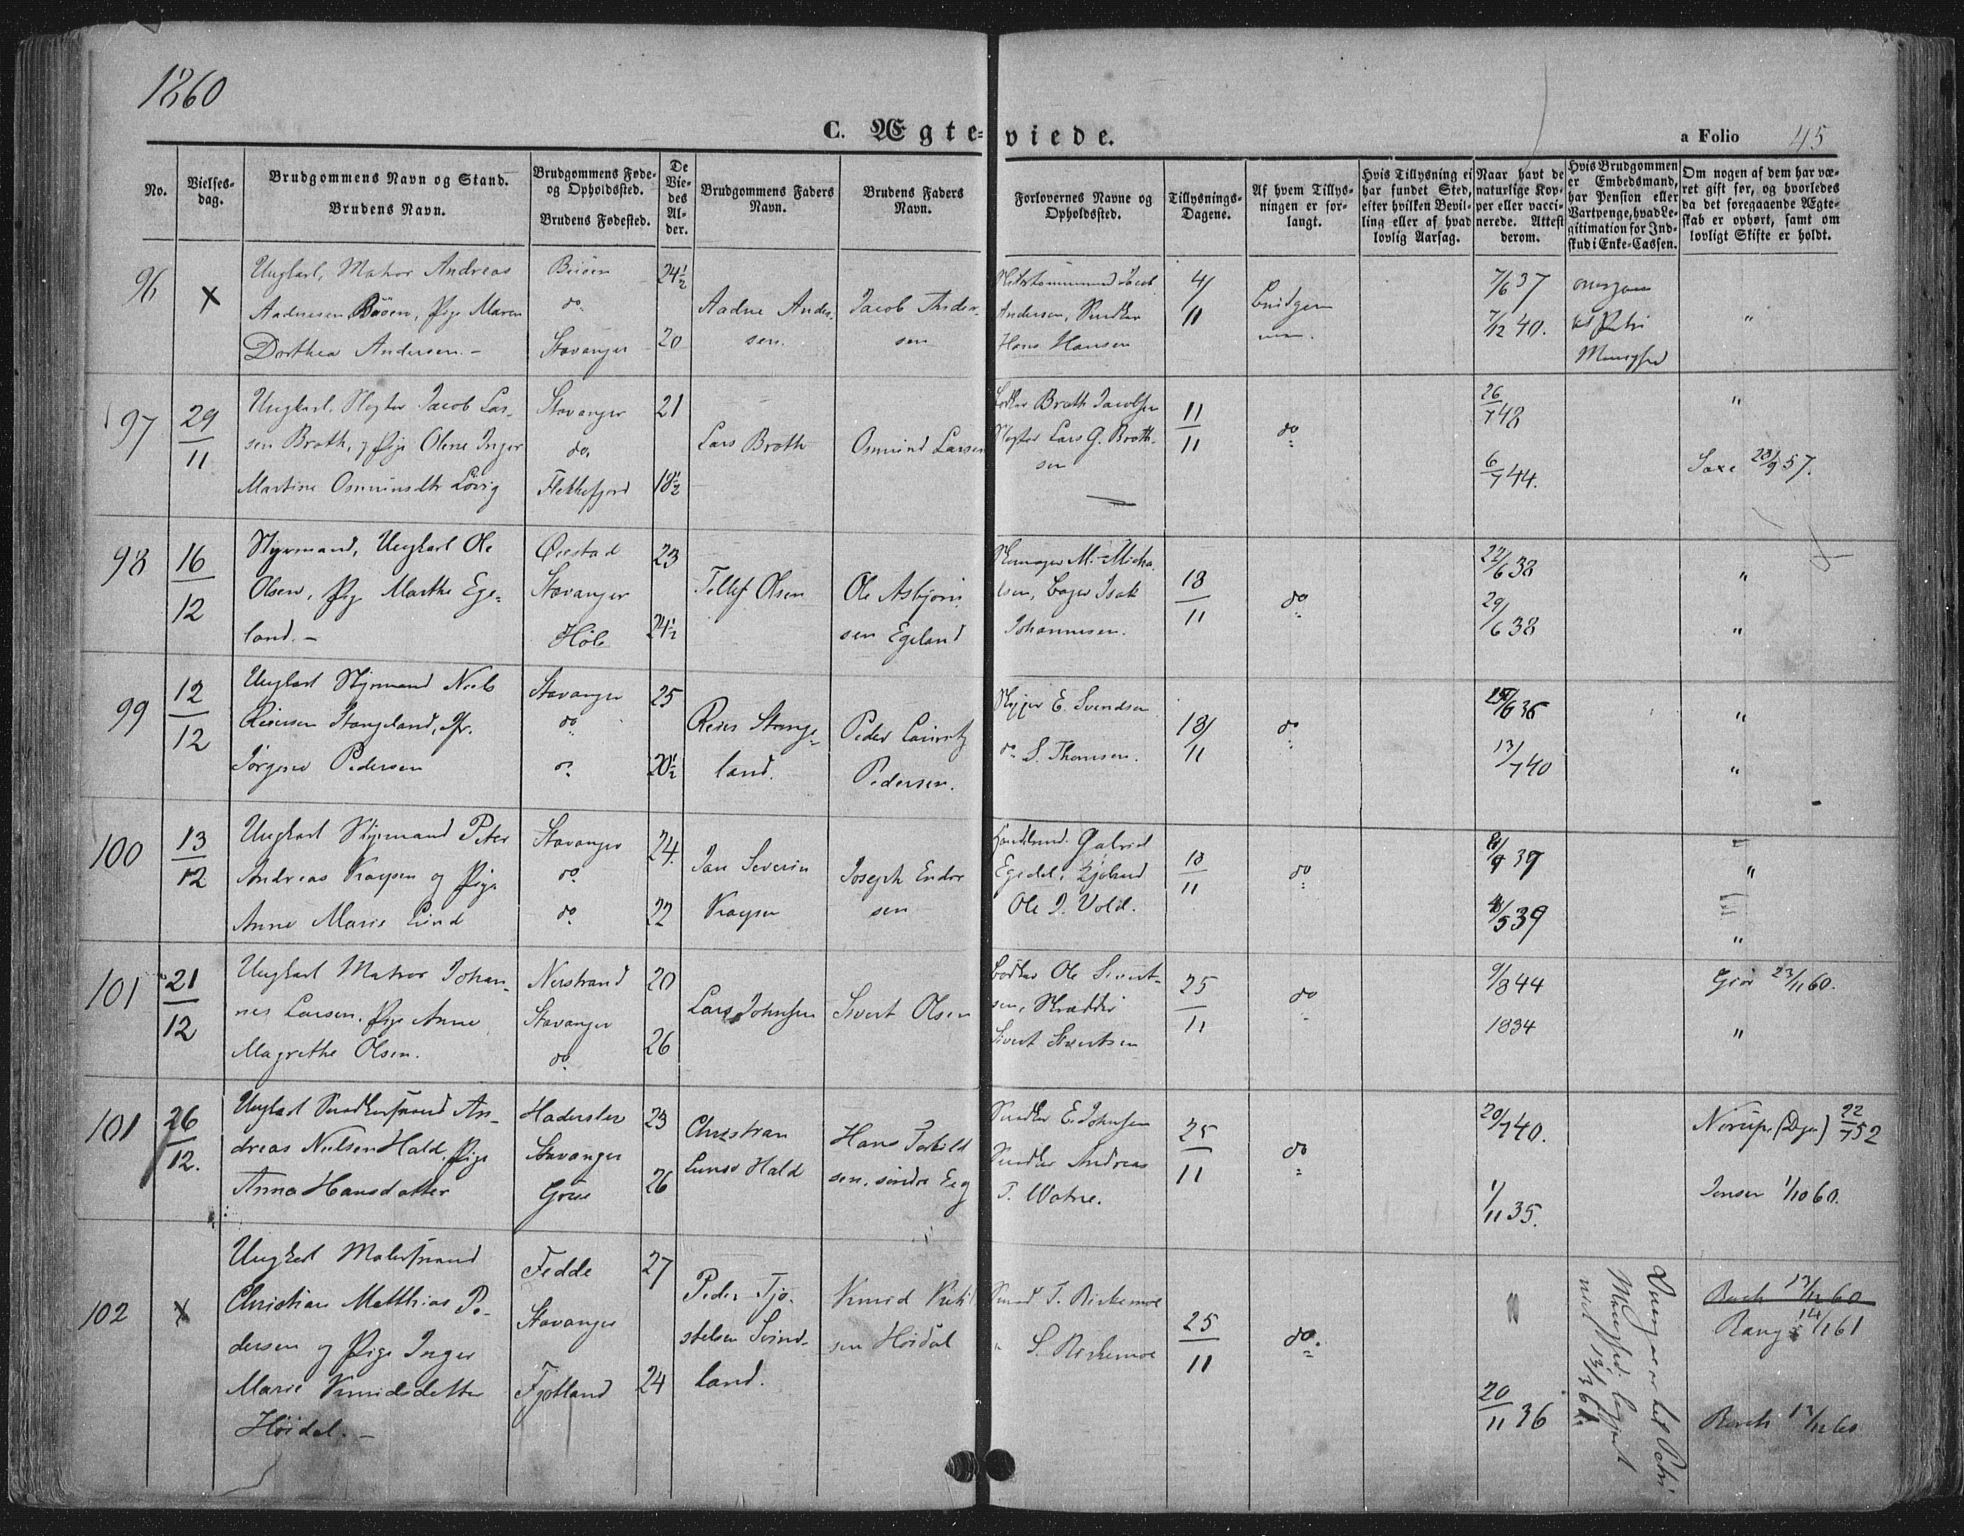 1860
C. Ægteviede.
a Folio 45
No.
Vielsesdag.
Brudgommens Navn og Stand.
Brudens Navn.
Brudgommens Føde-
og Opholdssted.
Brudens Fødested.
De
Vie-
des
Al-
der.
Brudgommens Faders
Navn.
Brudens Faders
Navn.
Forlovernes Navne og
Opholdssted.
Tillysnings-
Dagene.
Af hvem Tillys-
ningen er for-
langt.
Hvis Tillysning ei
har fundet Sted,
efter hvilken Bevil-
ling eller af hvad
lovlig Aarsag.
Naar havt de
naturlige Kop-
per eller vacci-
nerede. Attest
derom.
Hvis Brudgommen
er Embedsmand,
har Pension eller
Vartpenge, hvad Le-
gitimation for Ind-
skud i Enke-Cassen.
Om nogen af dem har væ-
ret gift før, og hvorledes
da det foregaaende Ægte-
skab er ophørt, samt om
lovligt Skifte er holdt.
96 x
Ungkarl, Matros Andreas
Aadnesen Bööen, Pige Maren
Dorthea Andersen.-
do.
Stavanger
24½
20
Aadne Ander-
sen.
Jacob Ander-
sen
Andersen, Snedker
Hans Hansen
4/11
7/6 37
7/12 40.
"
97 29/11
Ungkarl. Slagter Jacob Lar-
sen Broth, og Pige Olene Inger
Martine Osmundsdtr Lövig
Stavanger
do.
Flekkefjord
21
18½
Lars Broth
Osmund Larsen
Bödker Broth Jacobsen
Slagter Lars G. Broth-
sen
11/11
do
26/7 48
6/7 44.
"
Saxe 28/9 57.
98 16/12
Styrmand, Ungkarl Ole
Olsen, Pige Marthe Ege-
land.-
Stavanger
Høle
23
24½
Tellef Olsen
Ole Asbjörn-
sen Egeland
Skomager M. Micha-
lsen, Bager Isak
Johannesen.
18/11
do
22/6 38
29/6 38
"
"
99 12/12
Ungkarl Styrmand Niels
Reiersen Stangeland, Jfr.
Jörgine Pedersen
Stavanger
do
do.
25
20½
Reier Stange-
land.
Peder Lauritz
Pedersen.
Skipper E. Svendsen
do S. Thomsen.
18/11
do
13/7 40
"
"
100 13/12
Ungkarl Styrmand Peter
Andreas Kroepsen og Pige
Anne Marie Lind
Stavanger
do.
do.
24.
22
Jan Severin
Kroepsen
Joseph Endre-
sen
Gabriel
Egedel, Kjöbmd
Ole J. Vold.
18/11
do
39
/5 39
"
"
101 21/12
Ungkarl Matros Johan-
nes Larsen, Pige Anne
Magrethe Olsen.
Nerstrand
Stavanger
do.
20
26
Lars Johnsen
Sivert Olsen
Bödker Ole Sivert-
sen, Skrædder
Sivert Sivertsen
25/11
do
9/8 44
1834
Giör 23/11 60.
"
101 26/12.
Ungkarl Snedkersvend An-
dreas Nielsen Hald, Pige
Anna Hansdatter
Haderslev
Stavanger
23
26
Christian
Hald
Hans Torkild-
sen, söndre Eeg
Snedker E. Johnsen
Snedker Andreas
T. Watne.
25/11
do
20/7 40.
1/11 35.
22/7 52
Jensen 1/10 60.
102 x
Ungkarl Malersvend
Christian Matthias Pe-
dersen og Pige Inger
Marie Knudsdatter
Høidal.-
Fedde
Stavanger
Fjotland
27
24
Peder Tjö-
stelsen Svind-
land.
Knud Ketil-
sen Høidal
T. Birkemoe
" S. Birkemoe
25/11
do.
20/11 36
Rang 14/1 61
13/12 60